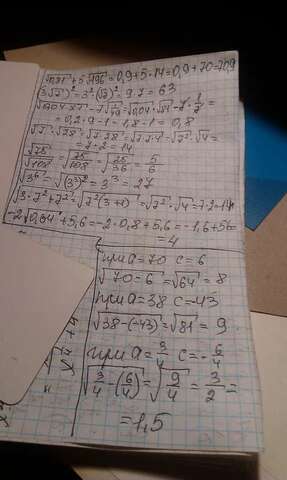 √0,81 + 5√196 = 0,9 + 5·14 = 0,9 + 70 = 70,9
(3√7)² = 3²·(√7)² = 9·7 = 63
= 0,2·9 - 1 = 1,8 - 1 = 0,8
√7·√28 = √7·28 = √7·7·4 = √7²·√4 =
= 7·2 = 14
√75/√108 = √75/108 = √25/36 = 5/6
√3⁶ = √(3³)² = 3³ = 27
√3·7²+7² = √7²(3+1) = √7²·√4 = 7·2 = 14
-2√0,64 + 5,6 = -2·0,8 + 5,6 = -1,6 + 5,6
= 4
при a = 70 c = 6
√70-6 = √64 = 8
при a = 38 c = -43
√38-(-43) = √81 = 9
при a = 3/4 c = -6/4
√3/4-(6/4) = √9/4 = 3/2 =
= 1,5